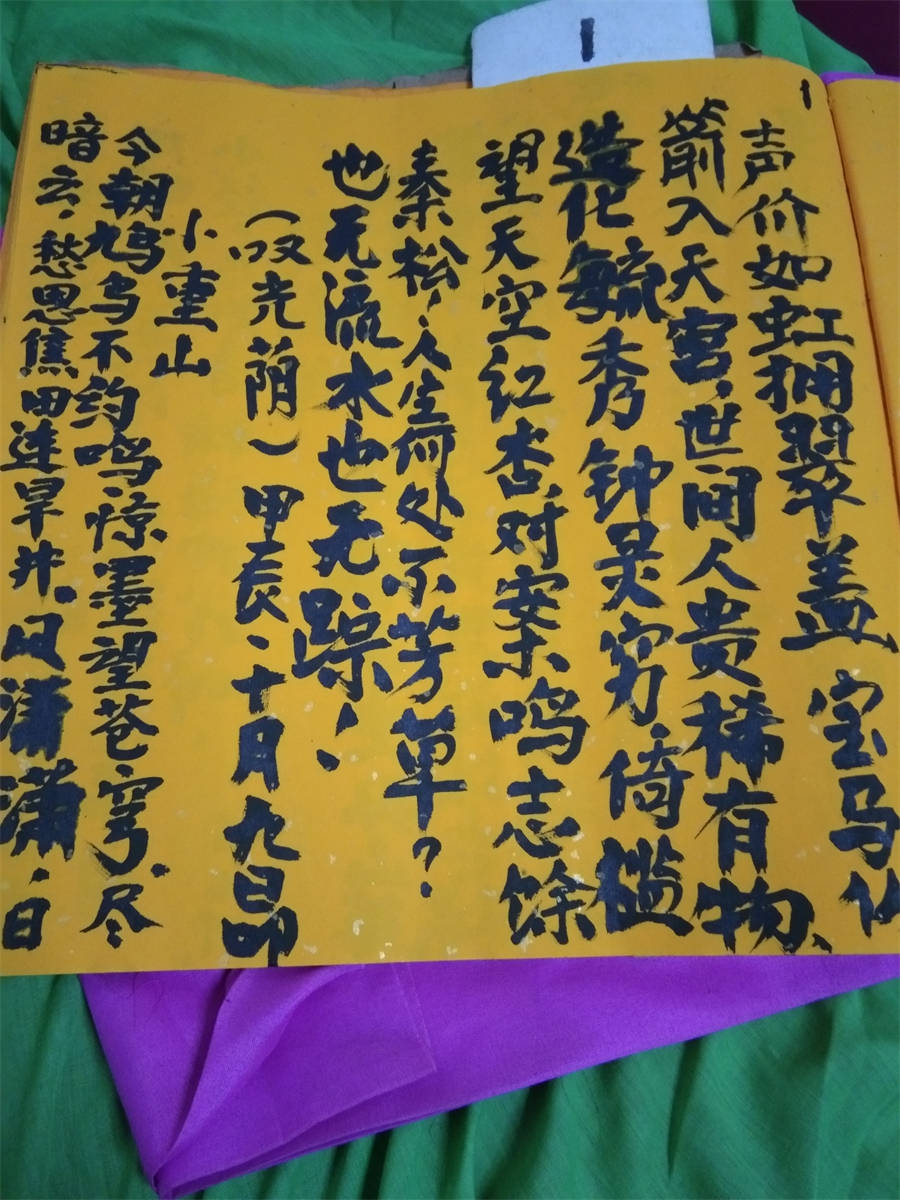 1
1
声价如虹拥翠盖 宝马仙
箭入天宫，世间人贵稀有物、
造化毓秀钟灵穷，倚槛
望天空红杏，对案鸣志馀
秦松，人生何处不芳草？
也无流水也无踪！
（叹光荫）甲辰、十月九日卯
小重山
今朝鸠鸟不约鸣，惊墨望苍穹，尽
暗云，愁思焦田连旱井，风潇潇，日